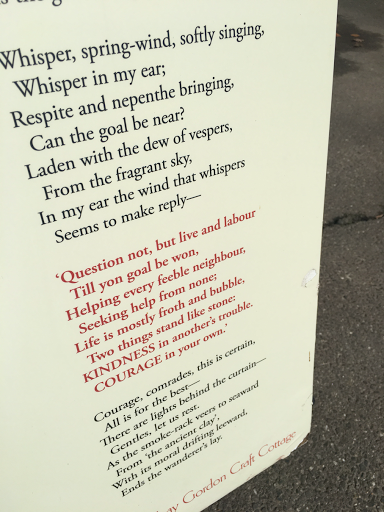 Whisper, spring-wind, softly singing,
Whisper in my ear;
Respite and nepenthe bringing,
Can the goal be near?
Laden with the dew of vespers,
From the fragrant sky,
In my ear the wind that whispers
Seems to make reply—
‘Question not, but live and labour
Till yon goal be won,
Helping every feeble neighbour,
Seeking help from none;
Life is mostly froth and bubble,
Two things stand like stone:
KINDNESS in another's trouble.
COURAGE in your own.’
Courage, comrades, this is certain,
All is for the best—
There are lights behind the curtain—
Gentles, let us rest.
As the smoke-rack veers to seaward
From ‘the ancient clay’,
With its moral drifting leeward,
Ends the wanderer's lay.
Gordon Craft Cottage